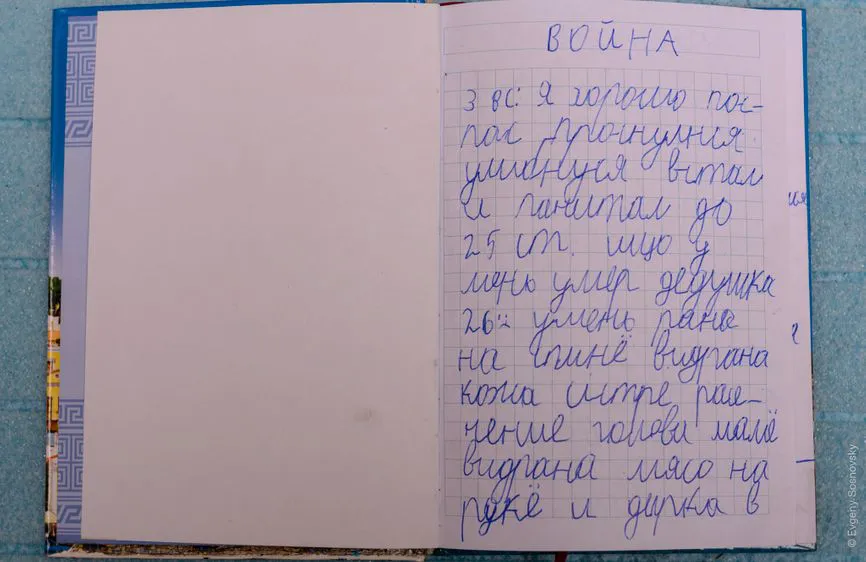 ВОЙНА
3 вс: Я хорошо пос-
пас проснулися
умионуся встал
и пачитал до
25 ст. ищо у
мень умер дедушка
26го умень рана
на спинё видрана
кожа систре рас-
чение голова маме
видрана мясо на
рукё и дирка в
© Evgeny Sosnovsky